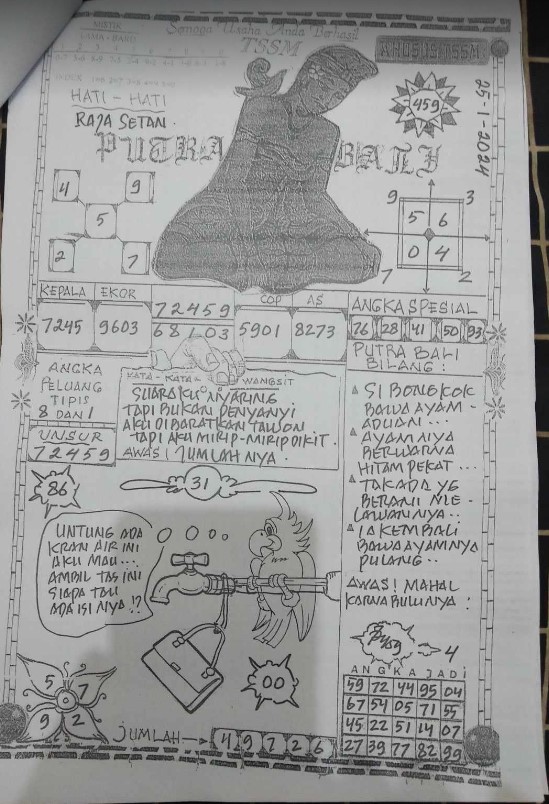 Semoga Usaha Anda Berhasil
TSSM
KHUSUS TSSM
HATI - HATI
RAJA SETAN.
PUTRA BALI
459
25-1-2024
4 9
5
2 7
9 3
5 6
0 4
7 2
KEPALA EKOR
7245 9603
72459
68103
COP AS
5901 8273
ANGKA SPESIAL
76 28 41 50 93
ANGKA
PELUANG
TIPIS
8 DAN 1
UNSUR
72459
KATA - KATA = WANGSIT
SUARAKU NYARING
TAPI BUKAN PENYANYI
AKU DIBARATKAN TAWON
TAPI AKU MIRIP-MIRIP DIKIT.
AWAS! JUMLAHNYA.
PUTRA BALI
BILANG:
SI BONGKOK
BAWA AYAM -
ADUAN ...
AYAMNYA
BERWARNA
HITAM PEKAT ...
TAK ADA YG
BERANI ME -
LAWANNYA..
IA KEMBALI
BAWA AYAMNYA
PULANG..
AWAS! MAHAL
KARNA BULUNYA:
86
31
UNTUNG ADA
KRAN AIR INI
AKU MAU...
AMBIL TAS INI
SIAPA TAU
ADA ISINYA!?
00
4
5 7
9 2
JUMLAH
4 9 7 2 6
ANGKA JADI
59 72 44 95 04
67 54 05 71 55
45 22 51 14 07
27 39 77 82 99